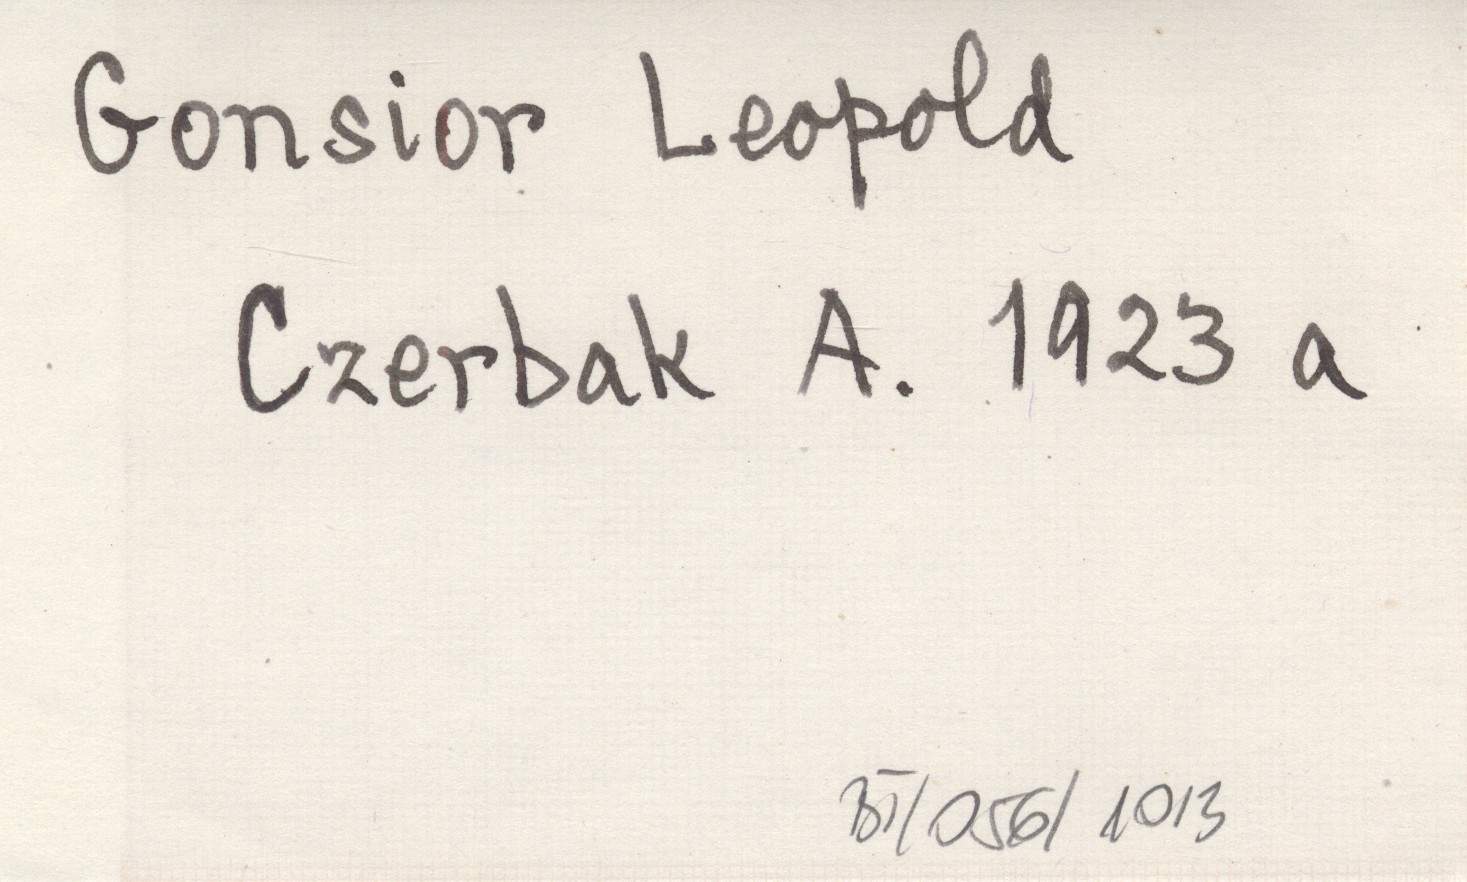 Gonsior Leopold
Czerbak A. 1923 a
BT/056/1013